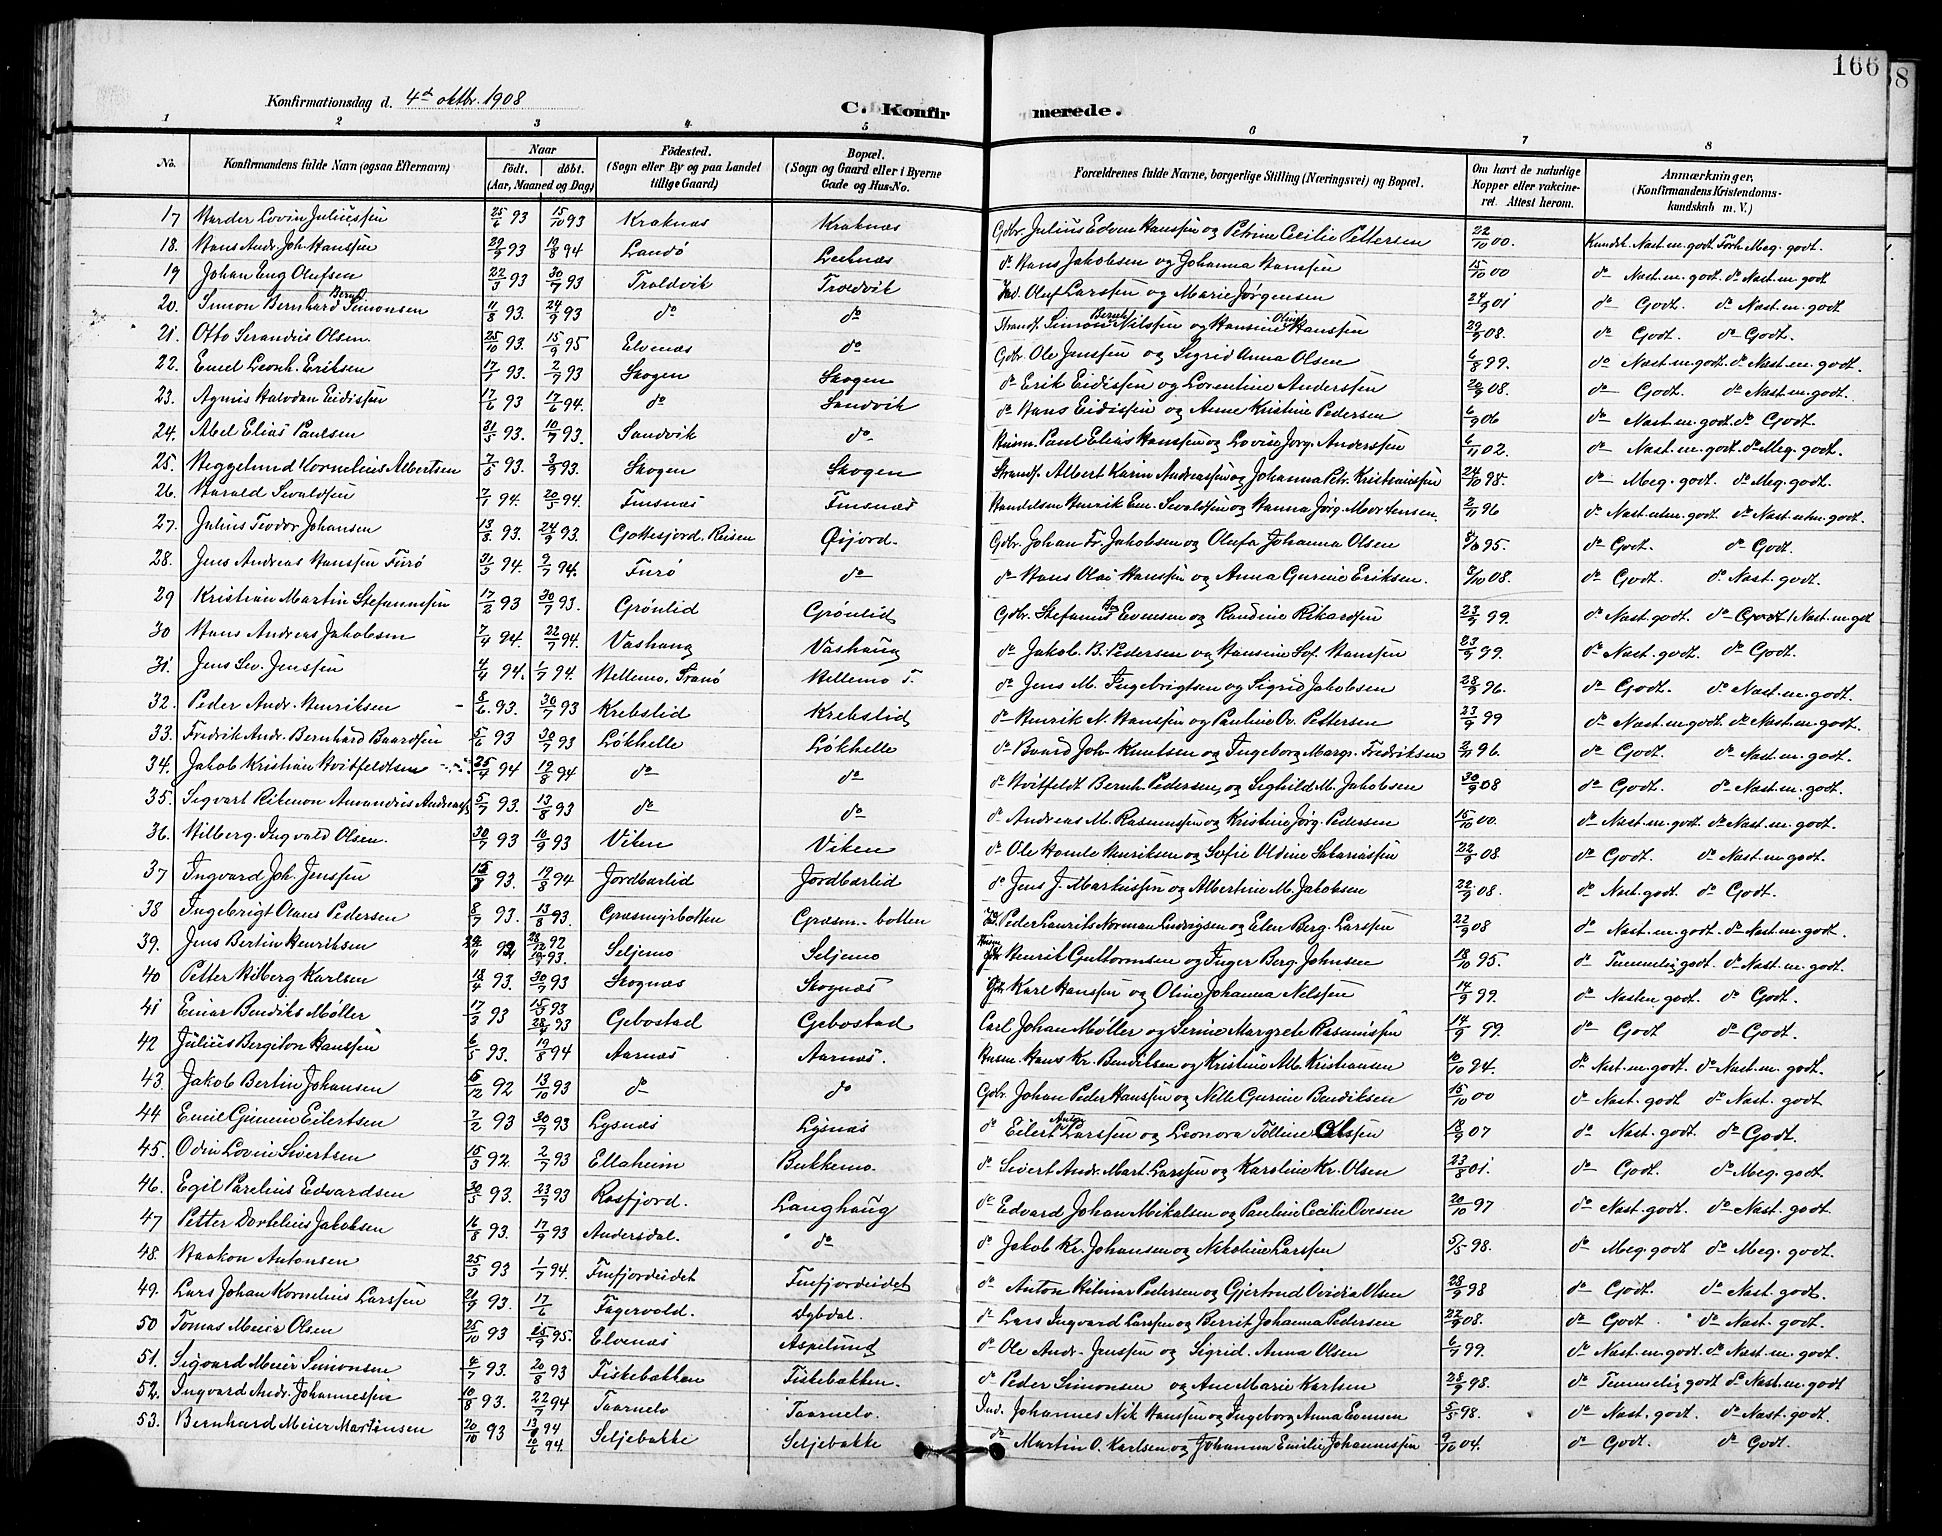 166
Konfirmationsdag d. 4de oktbr. 1908
C. Konfirmerede.
1 2 3 4 5 6 7 8
No. Konfirmandens fulde Navn (ogsaa Efternavn) Naar født. døbt. (Aar, Maaned og Dag) Fødested. (Sogn eller By og paa Landet tillige Gaard) Bopæl. (Sogn og Gaard eller i Byerne Gade og Hus-No. Forældrenes fulde Navne, borgerlige Stilling (Næringsvei) og Bopæl. Om havt de naturlige Kopper eller vakcineret. Attest herom. Anmærkninger, (Konfirmandens Kristendomskundskab m. V.)
17 Harder Lovin Juliussen 25/6 93 15/10 93 Kraknæs Kraknæs Gdbr. Julius Edvin Hanssen og Petrine Cecilie Pettersen 22/10 00. Kundsk. Nast. m. godt Forh. Meg. godt.
18. Hans Andr. Joh. Hanssen 29/9 93 19/8 94 Landø Leiknæs do Hans Jakobsen og Johanna Hanssen 15/10 00 do Nast. m. godt do Nast. m. godt
19 Johan Eng Olufsen 22/3 93 30/7 93 Troldvik Troldvik Ind. Oluf Larssen og Marie Jørgensen 24/9 01 do Godt. do Nast. m. godt.
20. Simon Bernhard Bernh. Simonsen 11/8 93. 24/9 93 do do Strands. Simon Bernh. Nilssen og Hansine Oline Hanssen 29/9 08. do Godt. do Godt.
21. Otto Serandius Olsen. 25/10 93. 15/9 95 Elvenæs do Gdbr. Ole Jenssen og Sigrid Anna Olsen 6/8 99. do Nast. m. godt. do Nast. m. godt.
22. Emil Leonh. Eriksen 17/1 93. 2/7 93 Skogen Skogen do Erik Eidissen og Lorentine Anderssen 20/9 08. do Godt. do Nast. m. godt.
23. Agnus Halvdan Eidissen 17/6 93 17/6 94. do Sandvik do Hans Eidissen og Anne Kristine Pedersen 6/9 06 do Nast. m. godt. do Godt.
24. Abel Elias Paulsen 31/5 93. 10/7 93. Sandvik do Husm. Paul Elias Hanssen og Lovise Jørg. Anderssen 6/11 02. do Nast. m. godt. do Meg. godt.
25. Heggelund Kornelius Albertsen 7/5 93. 3/9 93. Skogen Skogen Strands. Albert Karin Andreassen og Johanna Petr. Kristianssen 24/10 98. do Meg. godt do Meg. godt.
26. Harald Sivaldsen 7/1 94. 20/5 94. Finsnæs Finsnæs Handelsm. Henrik Em. Sivaldsen og Hanna Jørg. Mortensen. 2/11 96 do Nast. utm. godt do Nast. utm. godt.
27. Julius Teodor Johansen 13/8 93. 24/9 93. Gottesjord. Reisen Øijord. Gdbr. Johan Fr. Jakobsen og Olufa Johanna Olsen 8/6 95. do Godt. do Godt.
28. Jens Andreas Hanssen Furø 31/3 94. 9/7 94. Furø do do Hans Olai Hanssen og Anna Gurine Eriksen. 3/10 08. do Godt. do Nast. godt.
29 Kristian Martin Stefanussen 17/2 93 30/7 93. Grønlid Grønlid Gdbr. Stefanus Evensen og Randine Rikardsen 23/9 99. do Nast. godt. do Godt / Nast. m. gdt
30 Hans Andreas Jakobsen 7/4 94. 22/7 94. Vashaug Vashaug do Jakob. B. Pedersen og Hansine Sof. Hanssen 23/9 99. do Nast. godt. do Godt.
31. Jens Sev. Jenssen 4/4 94. 1/7 94. Hellemo, Tranø Hellemo T. do Jens M. Ingebrigtsen og Sigrid Jakobsen 28/9 96. do Godt. do Nast. m. godt.
32. Peder Andr. Henriksen 8/6 93. 30/7 93 Krebslid Krebslid do Henrik N. Hanssen og Pauline Ov. Pettersen 23/9 99 do Nast. m. godt do Nast. m. godt.
33. Fredrik Andr. Bernhard Baardsen 5/6 93 30/7 93 Løkhelle Løkhelle do Baard Joh. Knutsen og Ingeborg Marg. Fredriksen 2/11 96. do Godt. do Nast. m. godt.
34. Jakob Kristian Hvitfeldtsen 25/4 94 19/8 94 do do do Hvitfeldt Bernh. Pedersen og Sighild M. Jakobsen 30/9 08 do Godt. do Nast. m. godt.
35. Sigvart Rikmon Amandus Andreass. 5/7 93. 13/8 93 do do do Andreas M. Rasmussen og Kristine Jørg. Pedersen 15/10 00. do Nast. m. godt. do Nast. m. godt.
36. Hilberg Ingvald Olsen. 30/7 93 10/9 93 Viken Viken do Ole Homle Henriksen og Sofie Oldine Sakariassen 22/9 08. do Godt. do Nast. m. godt.
37 Ingvard Joh. Jenssen 15/8 93. 19/8 94 Jordbærlid Jordbærlid do Jens J. Markussen og Albertine M. Jakobsen 22/9 08. do Nast. godt do Godt.
38 Ingebrigt Olaus Pedersen 8/7 93. 13/8 93. Græsmyrbotten Græsm. botten Ind. Peder Laurits Norman Ludvigsen og Elen Berg. Larssen 22/9 08 do Nast. m. godt. do Nast. m. godt.
39. Jens Bertin Henriksen 24/11 92 28/12 92 10/9 93. Seljemo Seljemo Husm. Henrik Guttormsen og Inger Berg. Johnsen 18/10 95. do Temmelig godt. do Nast. m. godt.
40 Petter Hilberg Karlsen 18/4 93. 30/7 93 Skognæs Skognæs Gbr. Karl Hanssen og Oline Johanna Nilssen 14/9 99. do Næsten godt. do Godt.
41 Einar Bendiks Møller 17/2 93 15/3 93 28/4 93 Gebostad Gebostad Carl Johan Møller og Serine Margrete Rasmussen 14/9 99. do Godt do Godt.
42 Julius Bergiton Hanssen 6/5 93. 19/8 94 Aarnæs Aarnæs. Husm. Hans Kr. Bendiksen og Kristine Alb. Kristiansen 10/10 94. do Nast. m. godt. do Nast. m. godt.
43. Jakob Bertin Johansen 5/12 92 13/10 93 do do Gdbr. Johan Peder Hanssen og Nille Gurine Bendiksen 15/10 00 do Nast. godt do Nast. godt.
44 Emil Gunnin Eilertsen 7/2 93 30/7 93 Lysnæs Lysnæs do Eilert Anton Larssen og Leonora Tolline Olssen 18/9 07 do Nast. godt. do Godt.
45. Odin Lovin Sivertsen 15/3 92. 2/7 93 Ellaheim Bukkemo. do Sivert Andr. Mart. Larssen og Karoline Kr. Olsen 23/8 01. do Godt. do Meg. godt.
46. Egil Parelius Edvardsen 30/5 93. 23/7 93 Rosfjord. Langhaug do Edvard Johan Mikalsen og Pauline Cecilie Ovesen 20/10 97 do Nast. godt. do Nast. godt.
47 Petter Dortelius Jakobsen 16/8 93. 17/9 93 Andersdal. do do Jakob Kr. Johansen og Nikoline Larssen 5/5 98. do Meg. godt do Meg. godt.
48. Haakon Antonsen 25/3 93 1/7 94. Finfjordeidet Finfjordeidet do Anton Hilmar Pedersen og Gjertrud Ovidia Olsen 28/9 98 do Godt. do Nast. godt.
49. Lars Johan Kornelius Larssen 21/9 93. 17/6 Fagervold. Dybdal. do Lars Ingvard Larssen og Berrit Johanna Pedersen 22/9 08. do Godt. do Nast. godt.
50 Tomas Meier Olsen 25/10 93 25/9 95. Elvenæs Aspelund do Ole Andr. Jenssen og Sigrid. Anna Olsen 6/9 99. do Nast. m. godt do Nast. m. godt.
51. Sigvard Meier Simonsen 4/7 93. 20/8 93 Fiskebakken Fiskebakken. do Peder Simonsen og Ane Marie Karlsen 28/9 98. do Temmelig godt do Nast. m. godt
52. Ingvard Andr. Johannessen 10/8 93. 22/7 94 Taarnelv Taarnelv. Ind. Johannes Nik Hanssen og Ingeborg Anna Evensen 5/5 98. do Nast. godt. do Nast. godt.
53. Bernhard Meier Martinsen 20/10 93 13/1 94 10/6 94. Seljebakke Seljebakke do Martin O. Karlsen og Johanna Emilie Johannessen 9/10 04. do Godt do Godt.